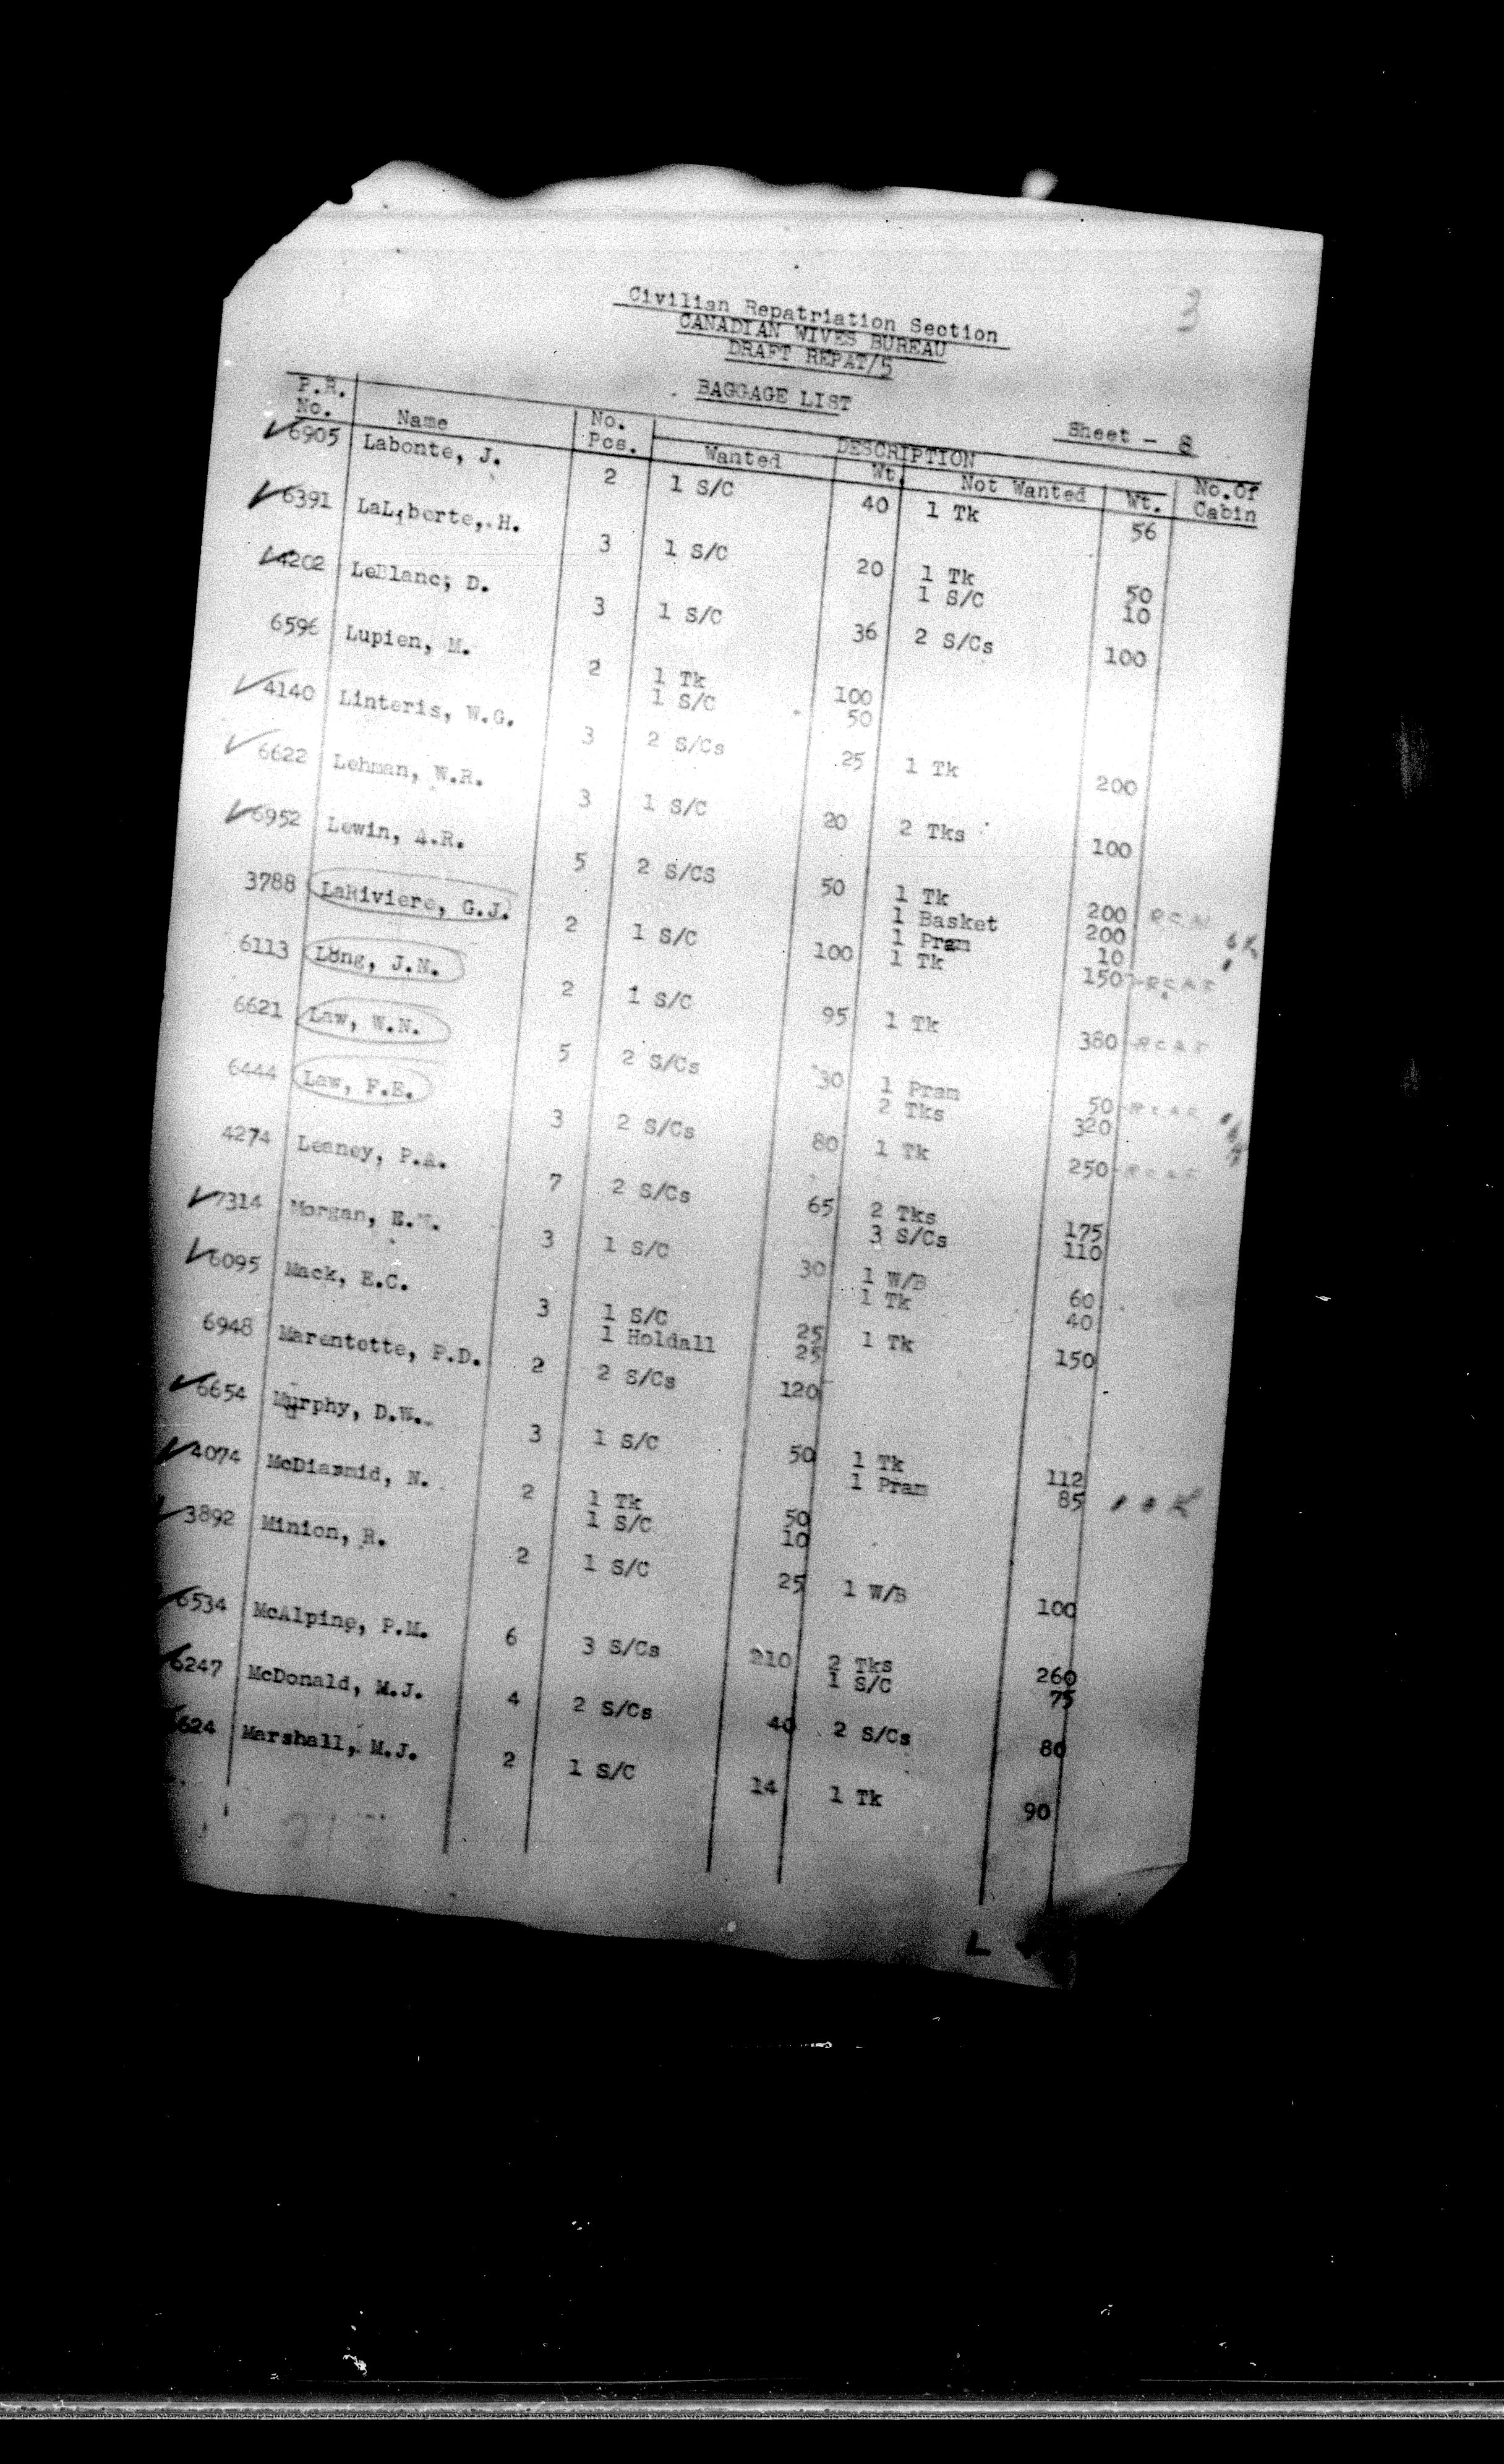 3
Civilian Repatriation Section
CANADIAN WIVES BUREAU
DRAFT REPAT/5
BAGGAGE LIST
Sheet - 8
P.R. No. Name No. Pcs. DESCRIPTION
Wanted Wt. Not Wanted Wt. No. Of Cabin
6905 Labonte, J. 2 1 S/C 40 1 Tk 56
6391 LaLiberte, H. 3 1 S/C 20 1 Tk 50
1 S/C 10
4202 LeBlanc, D. 3 1 S/C 36 2 S/Cs 100
6596 Lupien, M. 2 1 Tk 100
1 S/C 50
4140 Linteris, W.G. 3 2 S/Cs 25 1 Tk 200
6622 Lehman, W.R. 3 1 S/C 20 2 Tks 100
6952 Lewin, A.R. 5 2 S/CS 50 1 Tk 200
1 Basket 200
1 Pram 10
3788 LaRiviere, G.J. 2 1 S/C 100 1 Tk 150 RCAF
6113 Long, J.N. 2 1 S/C 95 1 Tk 380 RCAF
6621 Law, W.N. 5 2 S/Cs 30 1 Pram 50 RCAF
2 Tks 320
6444 Law, F.E. 3 2 S/Cs 80 1 Tk 250 RCAF
4274 Leaney, P.A. 7 2 S/Cs 65 2 Tks 175
3 S/Cs 110
7314 Morgan, E. 3 1 S/C 30 1 W/B 60
1 Tk 40
6095 Mack, E.C. 3 1 S/C 25 1 Tk 150
1 Holdall 25
6948 Marentette, P.D. 2 2 S/Cs 120
6654 Murphy, D.W. 3 1 S/C 50 1 Tk 112
1 Pram 85
4074 McDiarmid, N. 2 1 Tk 50
1 S/C 10
3892 Minion, R. 2 1 S/C 25 1 W/B 100
6534 McAlpine, P.M. 6 3 S/Cs 210 2 Tks 260
1 S/C 75
6247 McDonald, M.J. 4 2 S/Cs 40 2 S/Cs 80
624 Marshall, M.J. 2 1 S/C 14 1 Tk 90
L